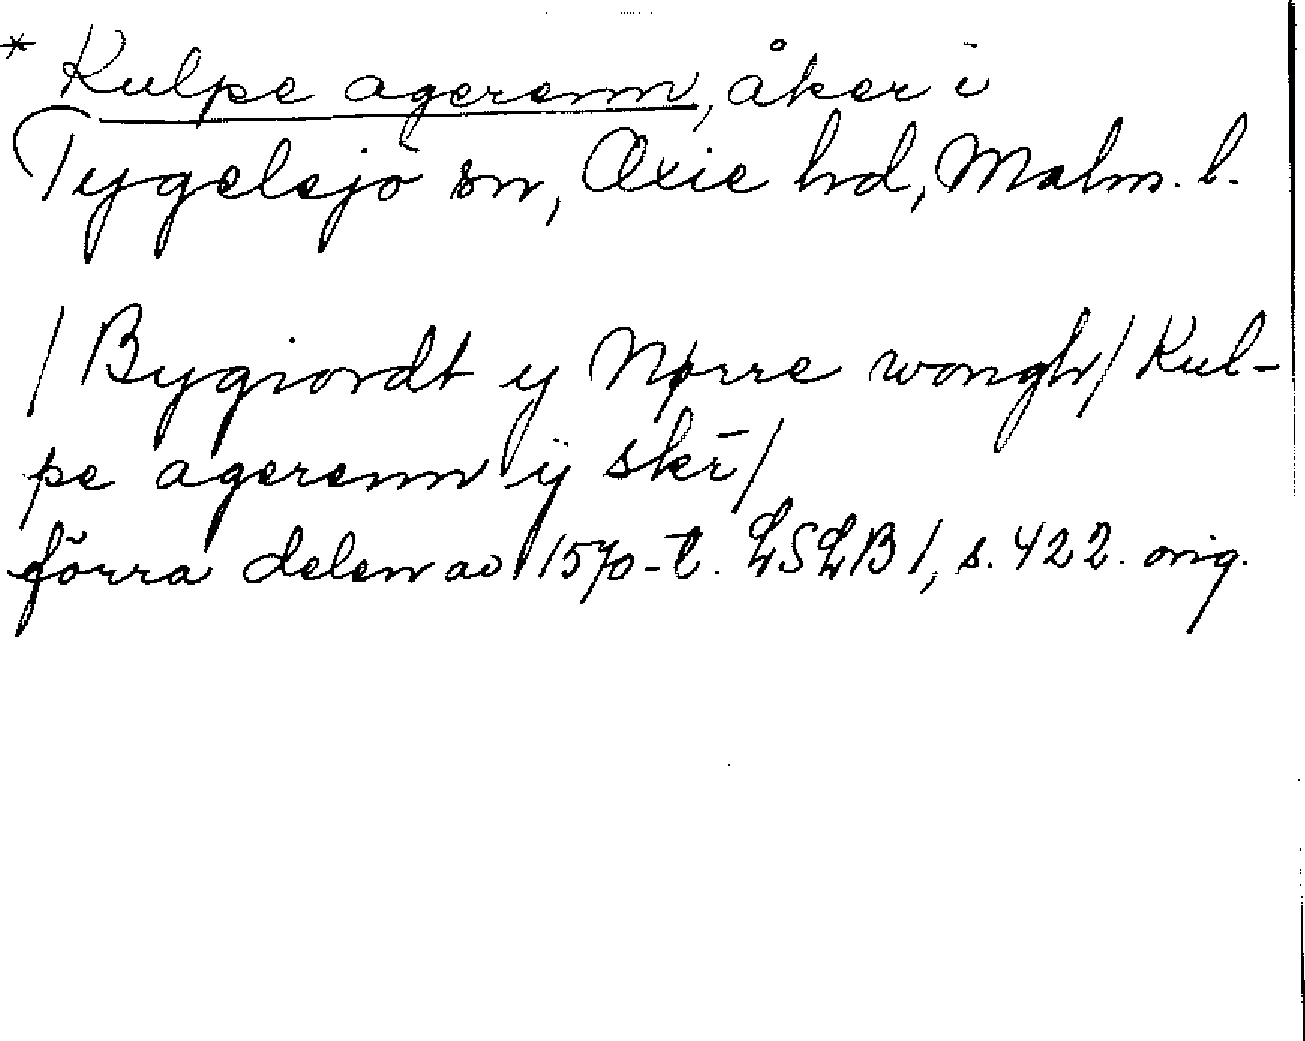 * Kulpe agerenn, åker i
Tygelsjö sn, Oxie hd, Malm. l.
/ Bygiordt y Nørre wongh / Kul-
pe agerenn ÿ skr̄ /
förra delen av 1570-t. LSLB 1, s. 422. orig.